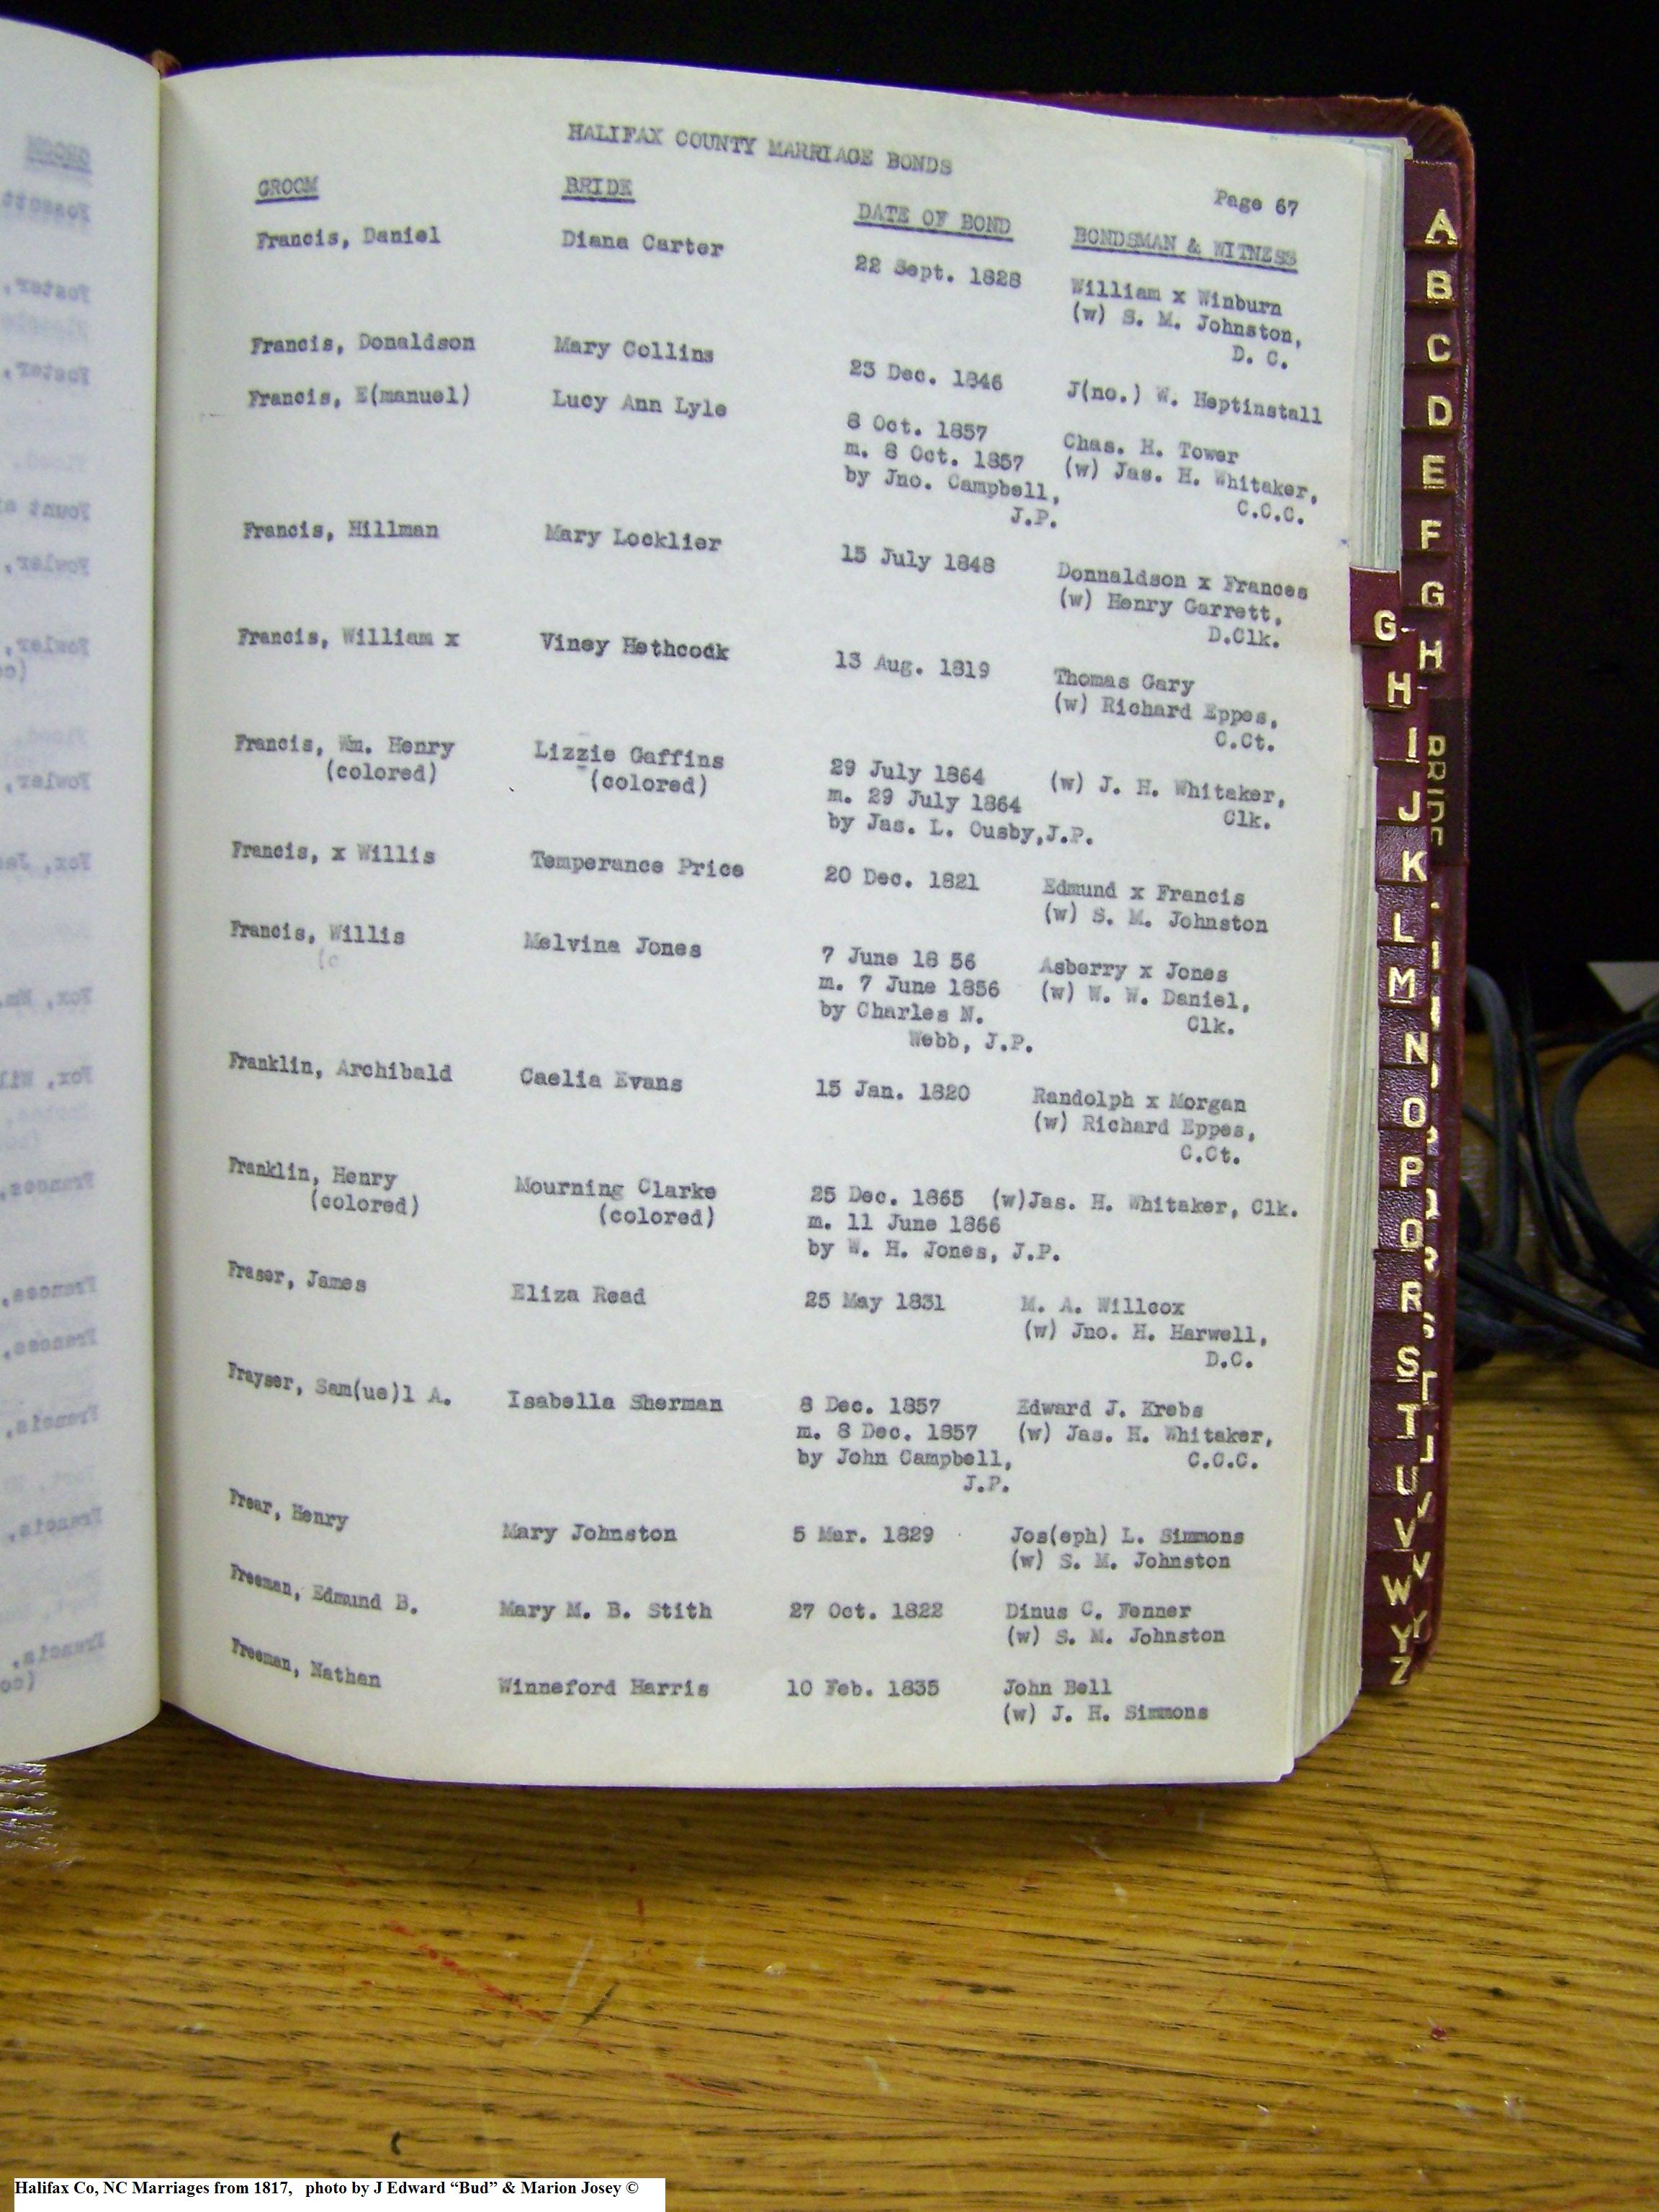 HALIFAX COUNTY MARRIAGE BONDS
Page 67
GROOM BRIDE DATE OF BOND BONDSMAN & WITNESS
Francis, Daniel Diana Carter 22 Sept. 1828 William x Winburn
(w) S. M. Johnston,
D. C.
Francis, Donaldson Mary Collins 23 Dec. 1846 J(no.) W. Heptinstall
Francis, E(manuel) Lucy Ann Lyle 8 Oct. 1857 Chas. H. Tower
m. 8 Oct. 1857 (w) Jas. H. Whitaker,
by Jno. Campbell, C.C.C.
J.P.
Francis, Hillman Mary Locklier 15 July 1848 Donnaldson x Frances
(w) Henry Garrett,
D.Clk.
Francis, William x Viney Hathcock 13 Aug. 1819 Thomas Gary
(w) Richard Eppes,
C.Ct.
Francis, Wm. Henry Lizzie Gaffins 29 July 1864 (w) J. H. Whitaker,
(colored) (colored) m. 29 July 1864 Clk.
by Jas. L. Ousby,J.P.
Francis, x Willis Temperance Price 20 Dec. 1821 Edmund x Francis
(w) S. M. Johnston
Francis, Willis Melvina Jones 7 June 18 56 Asberry x Jones
(c m. 7 June 1856 (w) W. W. Daniel,
by Charles N. Clk.
Webb, J.P.
Franklin, Archibald Caelia Evans 15 Jan. 1820 Randolph x Morgan
(w) Richard Eppes,
C.Ct.
Franklin, Henry Mourning Clarke 25 Dec. 1865 (w)Jas. H. Whitaker, Clk.
(colored) (colored) m. 11 June 1866
by W. H. Jones, J.P.
Fraser, James Eliza Read 25 May 1831 M. A. Willcox
(w) Jno. H. Harwell,
D.C.
Frayser, Sam(ue)l A. Isabella Sherman 8 Dec. 1857 Edward J. Krebs
m. 8 Dec. 1857 (w) Jas. H. Whitaker,
by John Campbell, C.C.C.
J.P.
Frear, Henry Mary Johnston 5 Mar. 1829 Jos(eph) L. Simmons
(w) S. M. Johnston
Freeman, Edmund B. Mary M. B. Stith 27 Oct. 1822 Dinus C. Fenner
(w) S. M. Johnston
Freeman, Nathan Winneford Harris 10 Feb. 1835 John Bell
(w) J. H. Simmons
A
B
C
D
E
F
G
H
G
H
I
J
K
L
M
N
O
P
Q
R
S
T
U
V
W
Y
Z
Halifax Co, NC Marriages from 1817, photo by J Edward “Bud” & Marion Josey ©